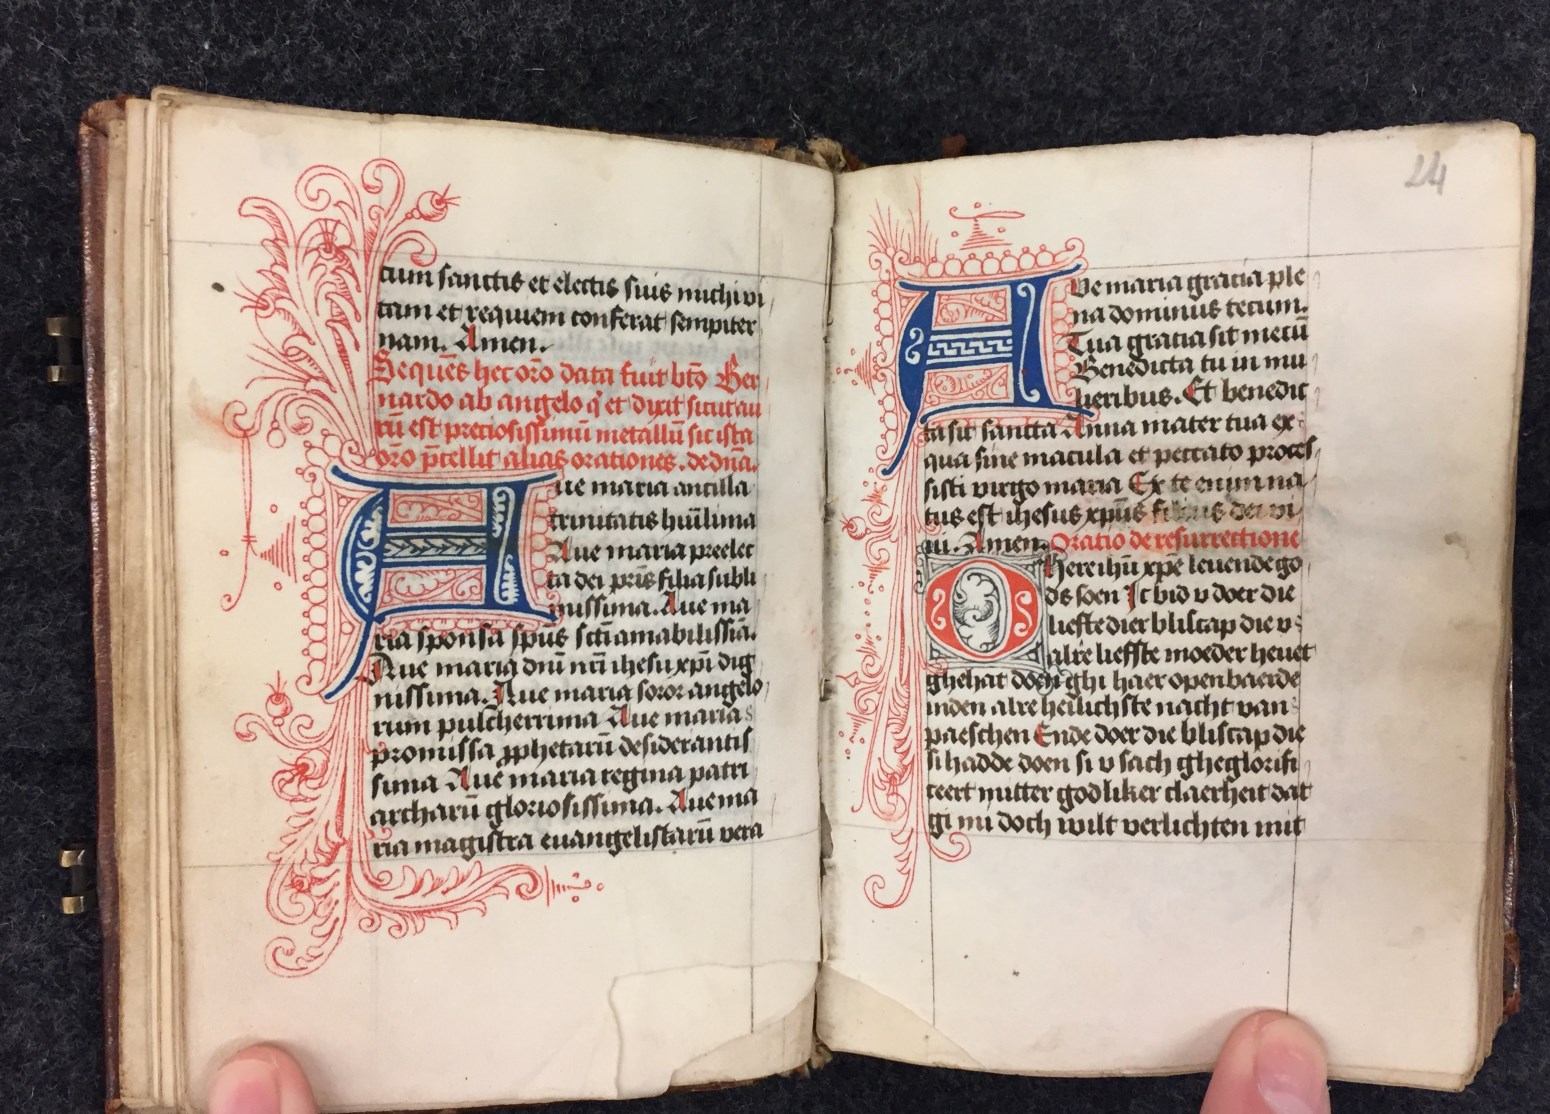 cum sanctis et electis suis michi vi
tam et requiem conferat sempiter
nam. Amen.
Sequēs hec orō data fuit btō Ber
nardo ab angelo q̄ et dixit sicut au
rū est preciosissimū metallū sic ista
orō p̄cellit alias orationes. de dn̄a.
Aue maria ancilla
trinitatis humilima
Aue maria preelec
ta dei pr̄is filia subli
missima. Aue ma
ria sponsa sp̄us sc̄ti amabilissīa.
Aue maria dn̄i nr̄i ihesu xp̄i dig
nissima. Aue maria soror angelo
rum pulcherrima Aue maria
promissa ꝓphetarū desiderantis
sima Aue maria regina patri
archarū gloriosissima. Aue ma
ria magistra euangelistarū vera
24
Aue maria gracia ple
na dominus tecum.
Tua gratia sit mecū
Benedicta tu in mu
lieribus. Et benedic
ta sit sancta Anna mater tua ex
qua sine macula et peccato proces
sisti virgo maria Ex te enim na
tus est ihesus xp̄us filius dei vi
ui. Amen. Oratio de resurrectione
O Here ihū xp̄e leuende go
ds soen Ic bid v doer die
liefte dier bliscap die v
alre lieffte moeder heuet
ghehat doen ghi haer openbaerde
inden alre heilichste nacht van
paeschen Ende doer die bliscap die
si hadde doen si v sach gheglorifi
ceert mitter godliker claerheit dat
gi mi doch wilt verlichten mit